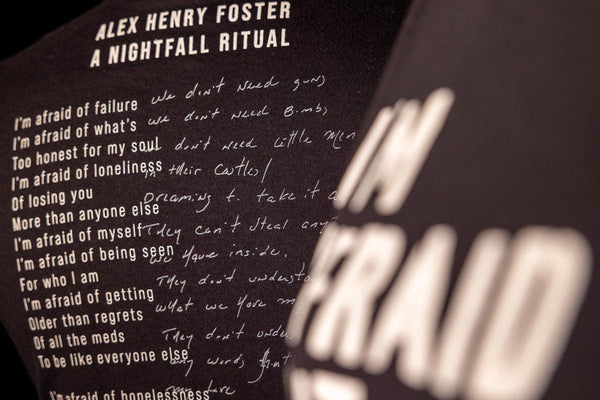 ALEX HENRY FOSTER
A NIGHTFALL RITUAL
I'm afraid of failure
I'm afraid of what's
Too honest for my soul
I'm afraid of loneliness
Of losing you
More than anyone else
I'm afraid of myself
I'm afraid of being seen
For who I am
I'm afraid of getting
Older than regrets
Of all the meds
To be like everyone else
I'm afraid of hopelessness
we don't need guns
we don't need Bombs
don't need little men
in their castles!
Dreaming to take it a
They can't steal any
we have inside.
They don't understa
what we have
They don't unde
any words,
I'M
AFRAID